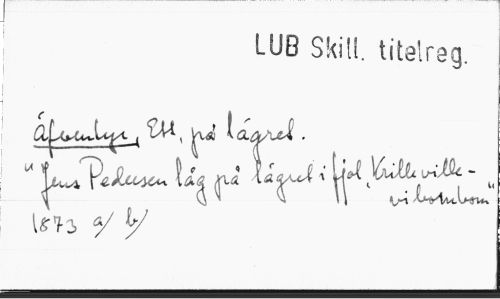 LUB Skill. titelreg.
Äfventyr, Ett, på lägret.
"Jens Pedersen låg på lägret i fjol, Krilleville-
vibombom"
1873 a/ b/